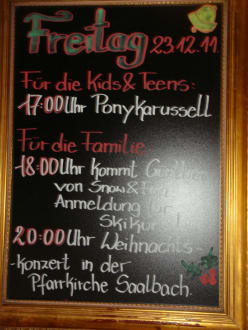 Freitag 23.12.11
Für die Kids & Teens:
17:00 Uhr Ponykarussell
Für die Familie
18:00 Uhr kommt
von Snow &
Anmeldung für
Skikurs
20:00 Uhr Weihnachts-
-konzert in der
Pfarrkirche Saalbach.